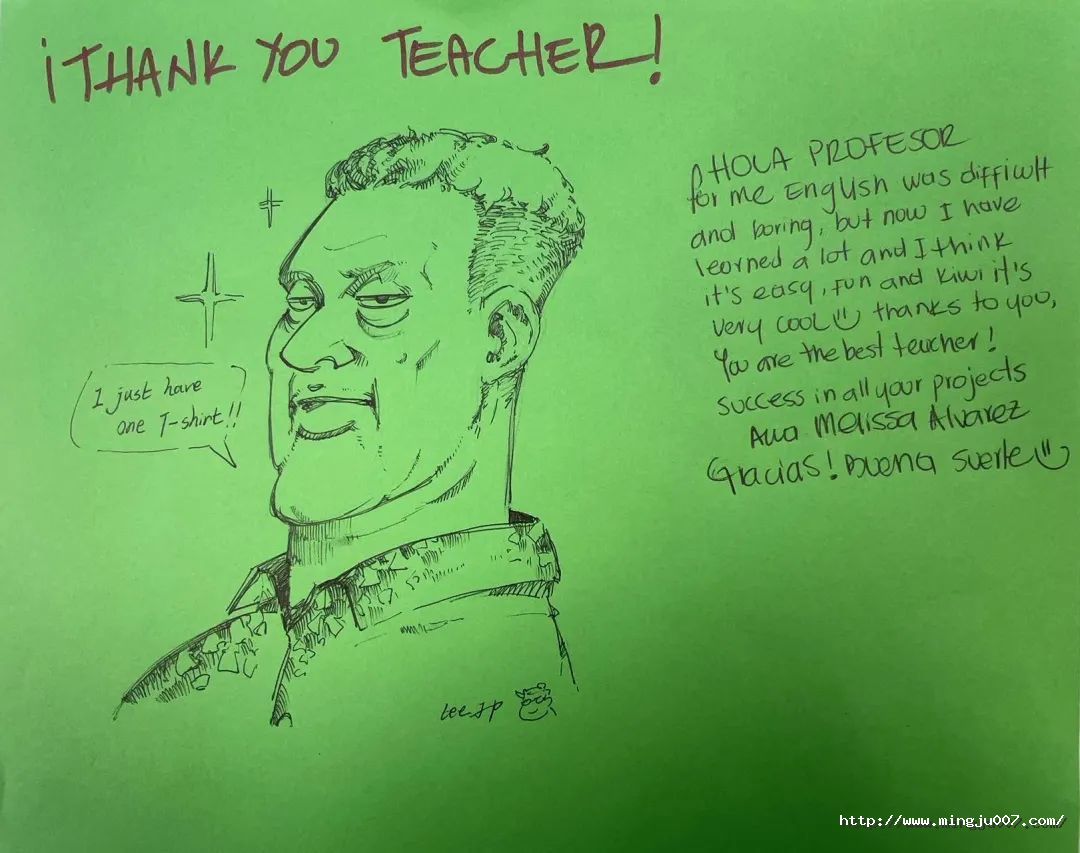 ¡THANK YOU TEACHER!
I just have
one T-shirt!!
HOLA PROFESOR
for me English was difficult
and boring, but now I have
learned a lot and I think
it's easy, fun and kiwi it's
very cool thanks to you,
You are the best teacher!
success in all your projects
Ana Melissa Alvarez
Gracias! Buena suerte
Lee.JP
http://www.mingju007.com/